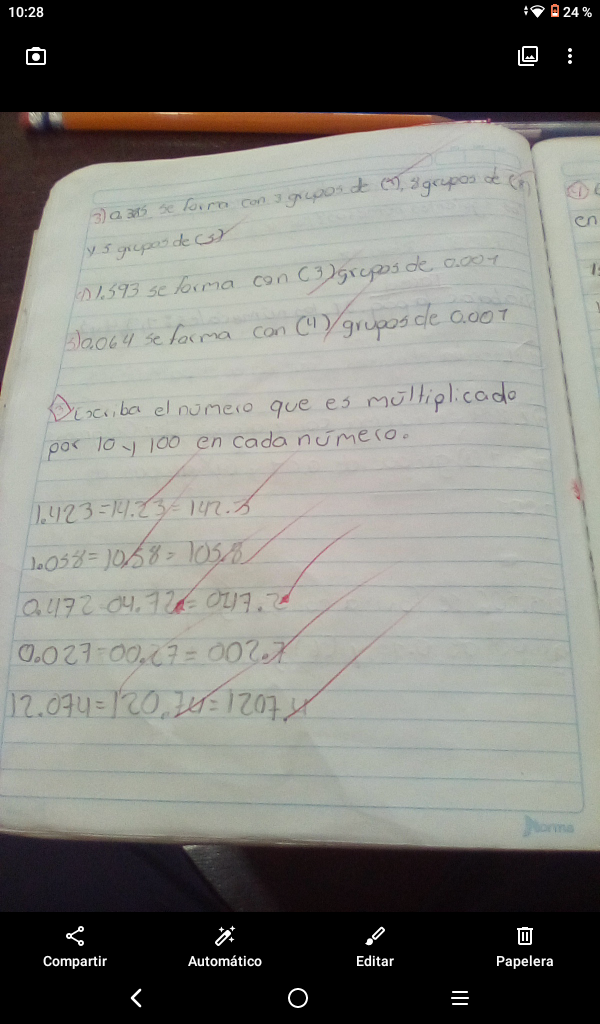 10:28
24 %
3) 0.385 se forma con 3 grupos de (1), 8 grupos de
y 5 grupos de (5)
1.593 se forma con (3) grupos de 0.001
5) 0.064 se forma con (4) grupos de 0.001
en
Escriba el número que es múltiplicado
por 10 y 100 en cada número.
1.423=14.23=142.3
1.058=10.58=105.8
0.472=04.72=047.2
0.027=00.27=002.7
12.074=120.74=1207.4
Norma
Compartir
Automático
Editar
Papelera